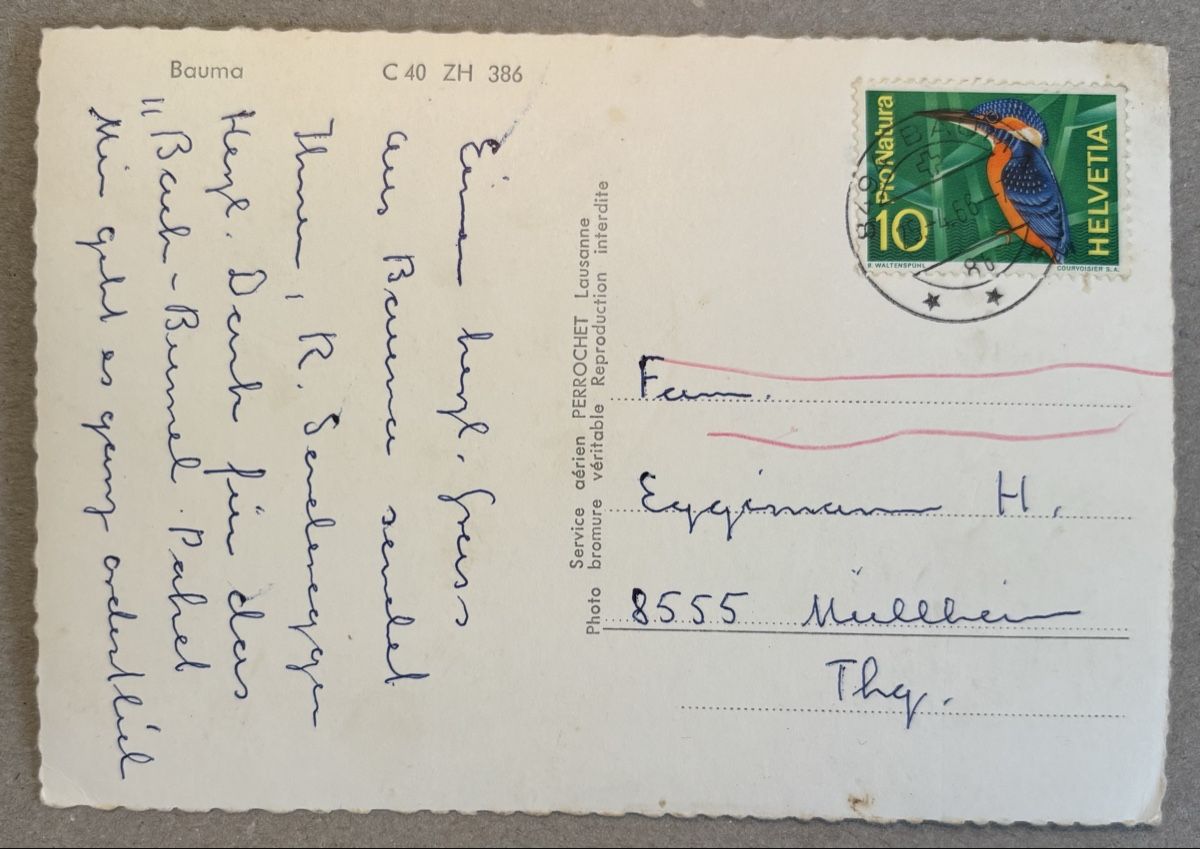 Bauma
C 40 ZH 386
Einen herzl. Gruss
aus Bauma sendet
Ihnen, R.
Herzl. Dank für das
"Buch-Bummel. Paket
Mir geht es ganz ordentlich
Service aérien PERROCHET Lausanne
Photo bromure véritable Reproduction interdite
Pro Natura
10
HELVETIA
COURVOISIER S.A.
8
-4.66
Fam.
Eggimann H.
8555 Müllheim
Thg.